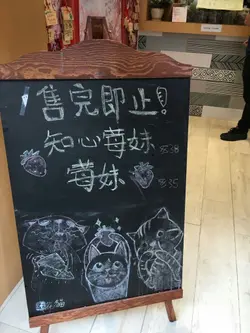 售完即止!
知心莓妹 $38
莓妹 $35
貓